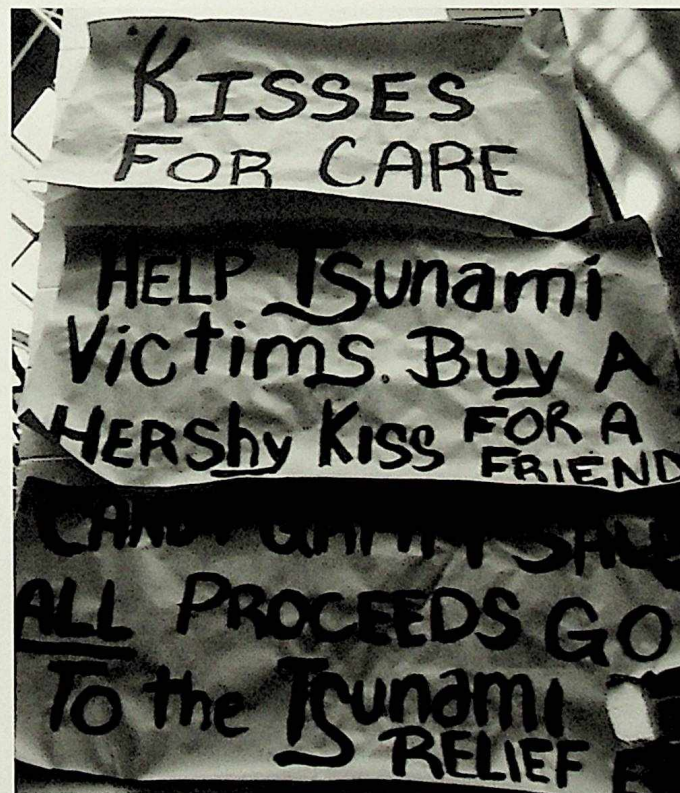 KISSES
FOR CARE
HELP TSunami
Victims. Buy A
HERShy KISS FOR A
FRIEND
CANDY
ALL PROCEEDS GO
To the TSunami
RELIEF